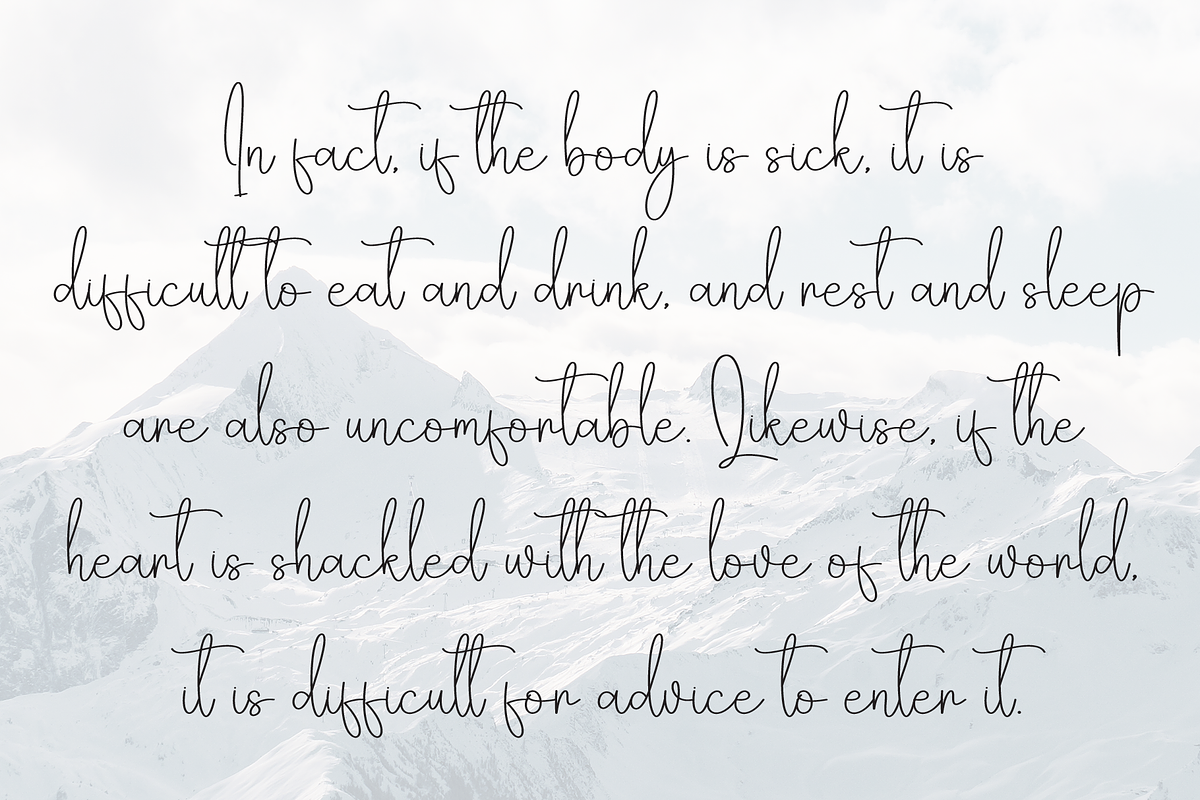 In fact, if the body is sick, it is
difficult to eat and drink, and rest and sleep
are also uncomfortable. Likewise, if the
heart is shackled with the love of the world,
it is difficult for advice to enter it.